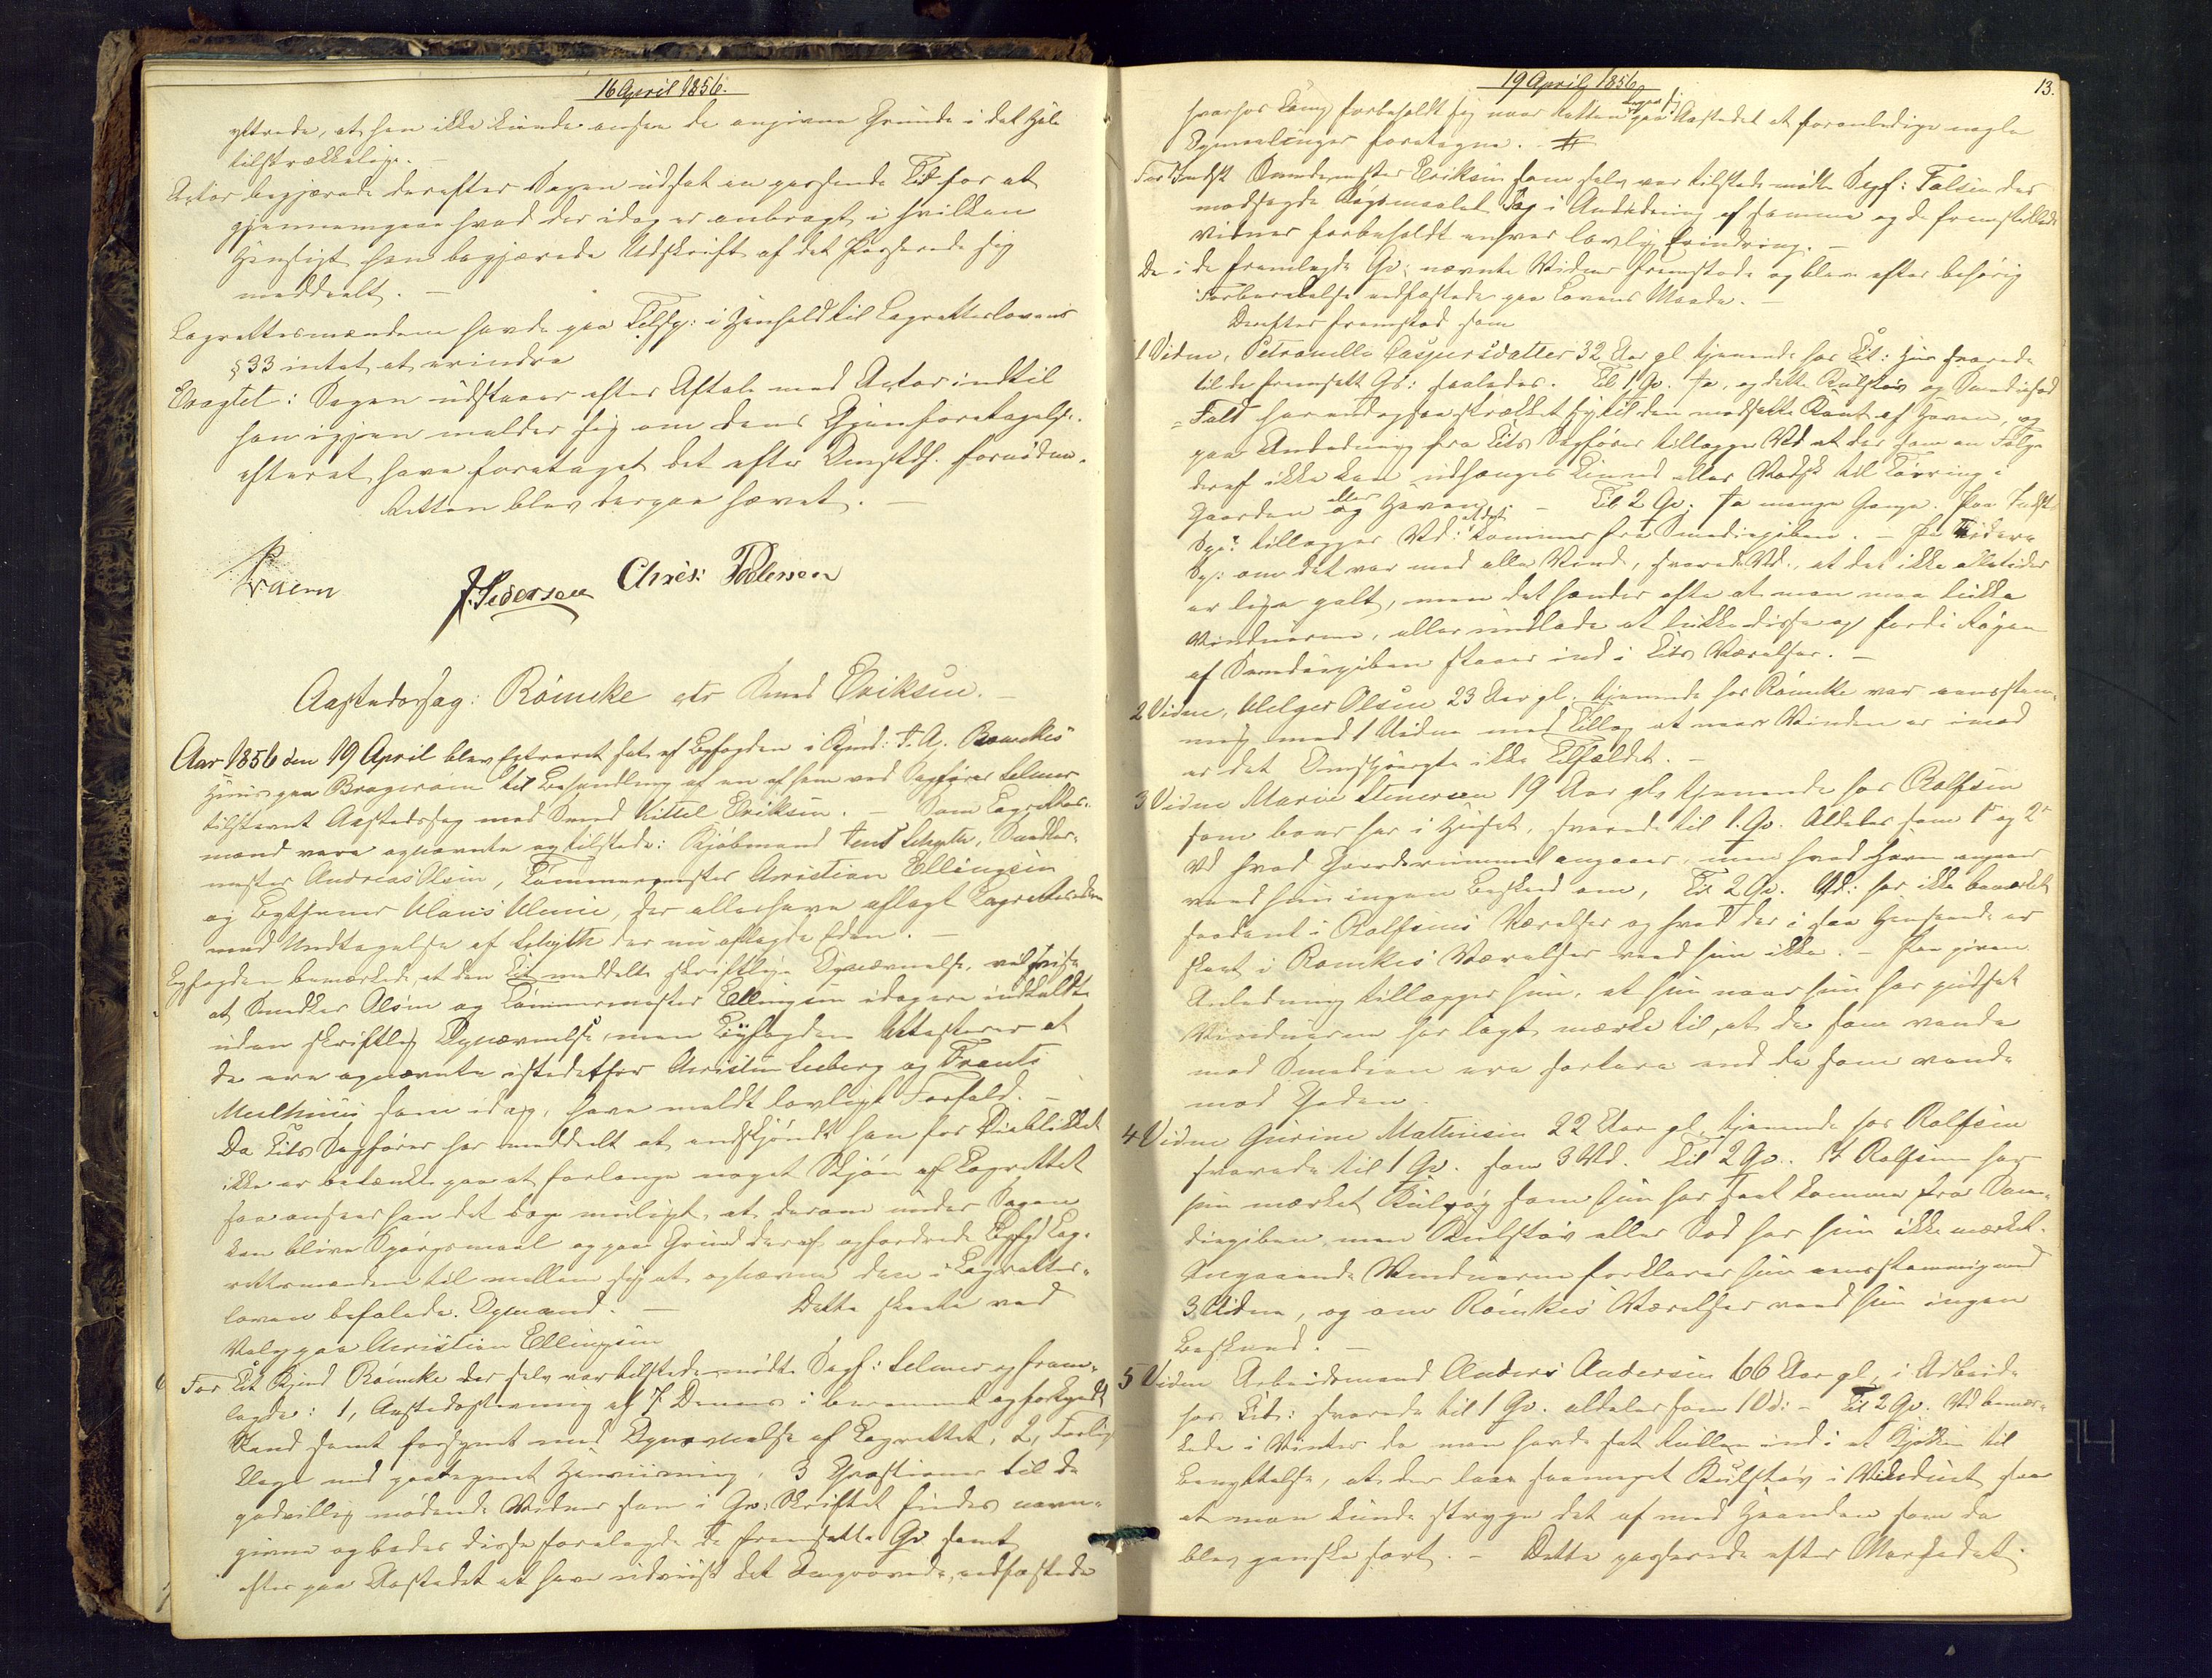 16 April 1856.
yttrede, at han ikke kunde ansee de angivne Grunde i det Hele
tilstrækkelige. –
Actor begjærede derefter Sagen udsat en passende Tid for at
gjennemgaae hvad der idag er anbragt, i hvilken
Hensigt han begjærede Udskrift af det Passerede sig
meddeelt. –
Lagrettesmændene havde paa Tilsp: i Henhold til Lagretteslovens
§ 33 intet at erindre
Eragtet: Sagen udstaaer efter Aftale med Actor indtil
han igjen melder sig om dens Gjenforetagelse.
efterat have foretaget det efter Omstdh. fornødne.
Retten blev derpaa hævet. –
J. Pedersen Chris: Pedersen
Aastedssag: Römcke ctr Smed Eriksen. –
Aar 1856 den 19 April blev Extraret sat af Byfogden i Kjmd: J. A. Römckes
Huus paa Bragernæs til Behandling af en af ham ved Sagfører Selmer
tilstevnt Aastedssag mod Smed Kittel Eriksen. – Som Lagrettes-
mænd vare opnævnte og tilstede: Kjøbmand Jens Schyth, Snedker-
mester Andreas Olsen, Tømmermester Christian Ellingsen
og Claus, der alle have aflagt Lagretteseden
med Undtagelse af Schyth der nu aflagde Eden. –
Byfogden bemærkede, at den Cit meddelte skriftlige Opnævnelse, udviser
at Snedker Olsen og Tømmermester Ellingsen idag ere indkaldte
uden skriftlig Opnævnelse, men Byfogden Attesterer at
de ere opnævnte istedetfor Christen Seeberg og Frants
som idag have meldt lovligt Forfald. –
Da Cits Sagfører har meddeelt at, endskjøndt han for Øieblikket
ikke er betænkt paa at forlange noget Skjøn af Lagrettet
saa ansees han det dog muligt, at derom under Sagen
kan blive Spørgsmaal og paa Grund deraf opfordrede Byfgd Lag-
rettesmændene til mellem sig at opnævne den i Lagrettes-
loven befalede Opmand. – Dette skeete ved
Valg paa Christian Ellingsen
For Cit Kjmd Römcke der selv var tilstede mødte Sagf: Selmer og frem-
lagde: 1, Aastedsstevning af 7 Dennes i berammet og forkyndt
Stand samt forsynet med Opnævnelse af Lagrettet, 2, Forligs-
klage med paategnet Henviisning, 3 Qvæstioner til de
godvillig mødende Vidner som i Qv: Skriftet findes navn-
givne og bedes disse forelagde de fremsatte Qv samt
efter paa Aastedet at have udviist det Omprovede, edfæstede
19 April 1856
13.
hvorhos Comp forbeholdt sig naar Retten begav sig paa Aastedet at foranledige nogle
Opmaalinger foretagne. #
For Indst Smedemester Eriksen som selv var tilstede mødte Sagf: Falsen der
modsagde Søgsmaalet. Tog i Anledning af samme og de fremstillede
Vidner forbeholdt enhver lovlig Erindring. –
De i de fremlagte Qv: nævnte Vidner fremstode og bleve efter behørig
Forberedelse edfæstede paa Lovens Maade. –
Derefter fremstod som
1 Vidne, Petronelle Caspersdatter 32 Aar gl tjenende hos Cit: hun svarede
til de fremsatte Qv: saaledes. Til 1 Qv. Ja, og dette Kulstøv og Smedesod
Fald har endogsaa strækket sig til den modsatte Kant af Haven, og
paa Anledning fra Cits Sagfører tillægger Vd at der som en Følge
deraf ikke kan udhænges Linned eller Vadsk til Tørring i
Gaarden eller Haven. – Til 2 Qv. Ja mange Gange. Paa Indst
Sp: tillægger Vd: at det kommer fra Smediepiben. – Paa videre
Sp: om det var med alle Vinde, svarede Vd., at det ikke alletider
er lige galt, men det hænder ofte at man maa lukke
Vinduerne, eller undlade at lukke disse op fordi Røgen
af Smediepiben staaer ind i Cits Værelser. –
2 Vidne, Helger Olsen 23 Aar gl. tjenende hos Römcke var eensstem-
mig med 1 Vidne med Tillæg at naar Vinden er imod
er det Omspørgte ikke Tilfældet. –
3 Vidne Marie Stenersen 19 Aar gl, tjenende hos Rolfsen
som boer her i Huset, svarede til 1. Qv. Aldeles som 1' og 2'
Vd hvad Gaardsrummet angaaer, men hvad Haven angaaer
veed hun ingen Besked om, Til 2 Qv. Vd: har ikke bemærket
saadant i Rolfsens Værelser og hvad der i saa Henseende er
skeet i Römckes Værelser veed hun ikke. – Paa given
Anledning tillægger hun, at hun naar hun har pudset
Vinduerne har lagt mærke til, at de som vende
mod Smedien ere sortere end de som vende
mod Gaden.
4 Vidne Gurine Mathisen 22 Aar gl. tjenende hos Rolfsen
svarede til 1 Qv. som 3 Vd. Til 2 Qv.. Hos Rolfsen har
hun mærket Kulrøg som hun har seet komme fra Sme-
diepiben, men Kulstøv eller Sod har hun ikke mærket.
Angaaende Vinduerne forklarer hun eensstemmig med
3 Vidne, og om Römckes Værelser veed hun ingen
Beskeed. –
5 Vidne Arbeidsmand Anders Andersen 66 Aar gl, i Arbeide
hos Cit: svarede til 1 Qv. aldeles som 1 Vd: – Til 2 Qv. Vd bemær-
kede i Vinter da man havde sat Rullen ind i et Kjøkken til
Benyttelse, at der laae saameget Kulstøv i Vinduet saa
at man kunde stryge det af med Haanden som da
blev ganske sort. – Dette passerede efter Markedet.